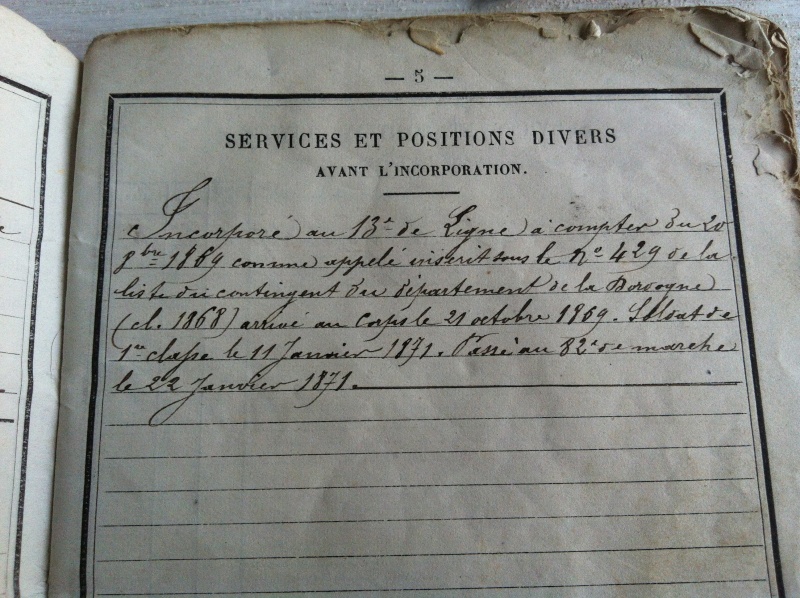 — 5 —
SERVICES ET POSITIONS DIVERS
AVANT L'INCORPORATION.
Incorporé au 13e de Ligne à compter du 20
8bre 1869 comme appelé inscrit sous le No 429 de la
liste du contingent du département de la Dordogne
(cl. 1868) arrivé au corps le 21 octobre 1869. Soldat de
1re classe le 11 Janvier 1871. Passé au 82e de marche
le 22 Janvier 1871.